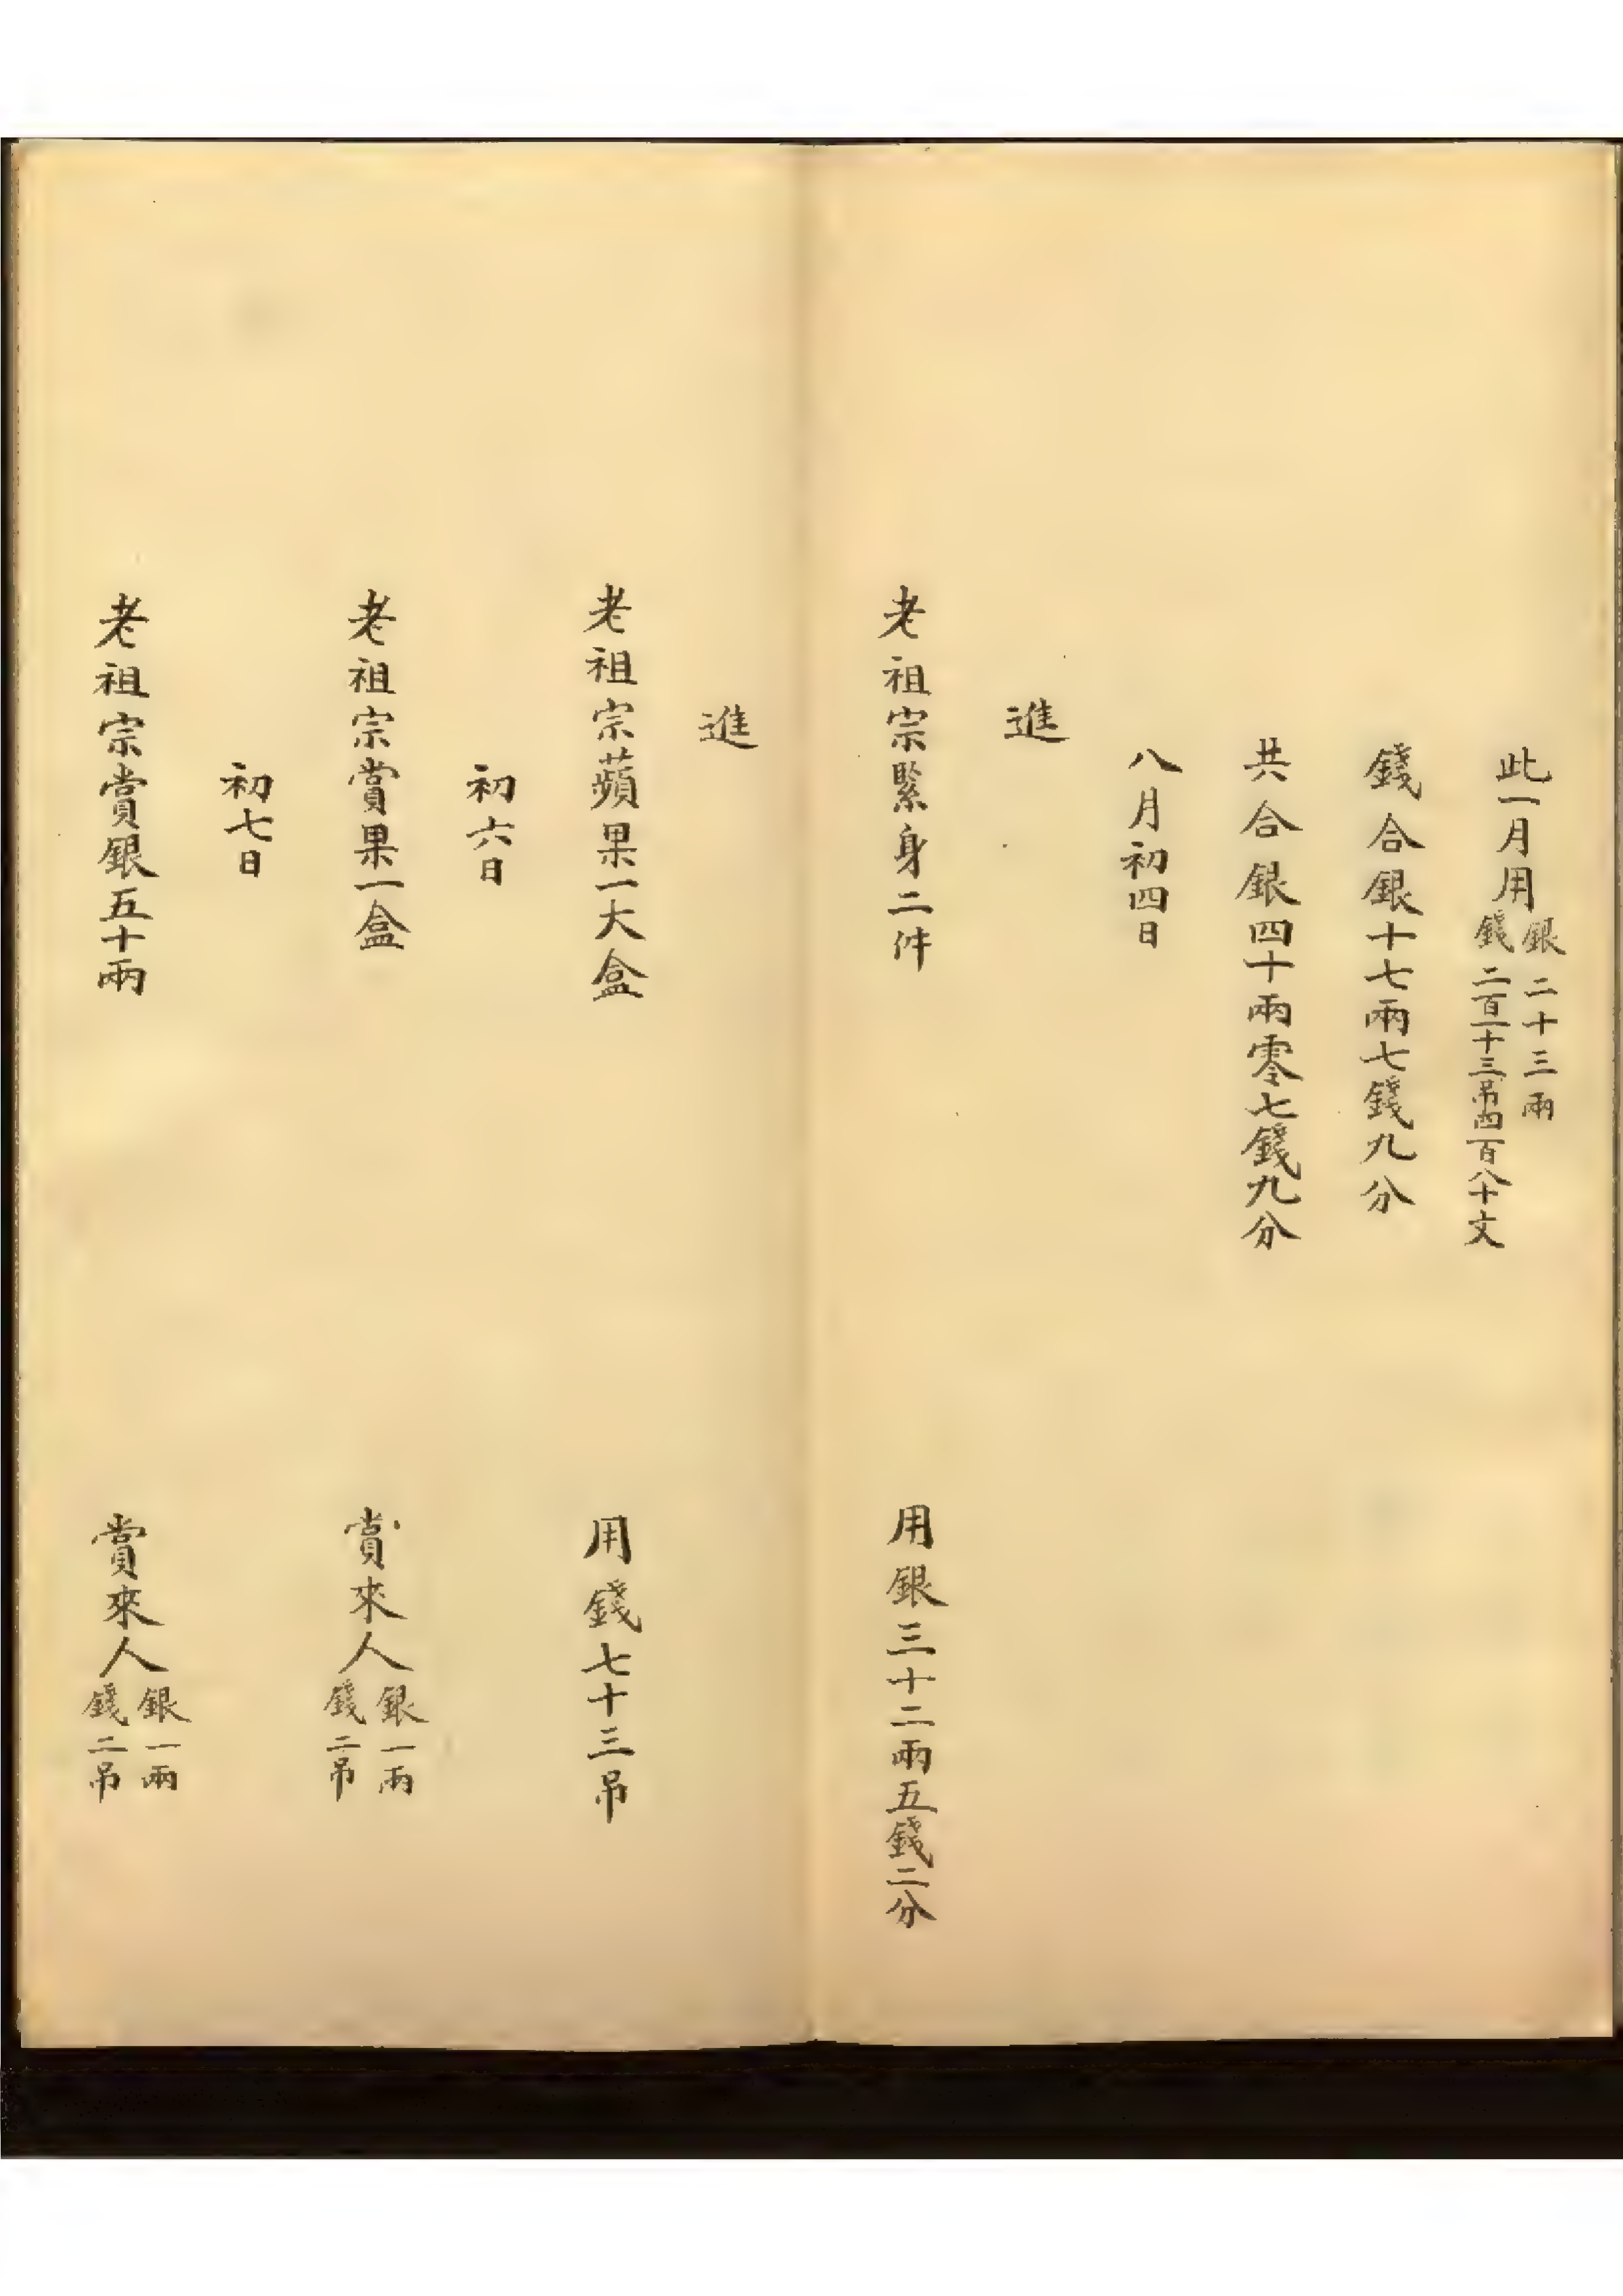 此一月用銀二十三兩
錢二百一十三吊四百八十文
錢合銀十七兩七錢九分
共合銀四十兩零七錢九分
八月初四日
進
老祖宗緊身二件
用銀三十二兩五錢二分
進
老祖宗蘋果一大盒
用錢七十三吊
初六日
老祖宗賞果一盒
賞來人銀一兩
錢二吊
初七日
老祖宗賞銀五十兩
賞來人銀一兩
錢二吊